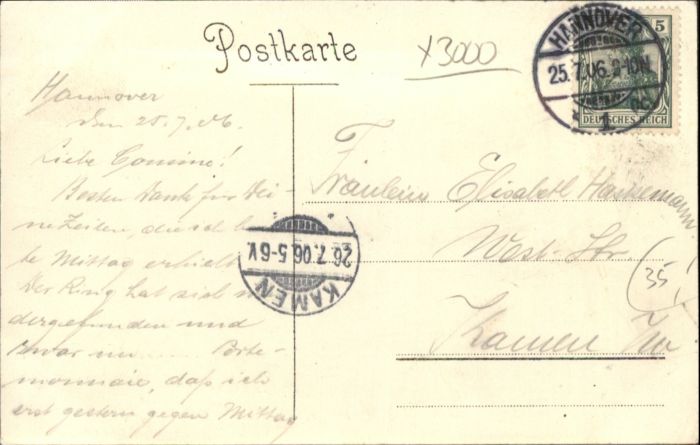 Postkarte
x3000
HANNOVER
25.7.06.
1
5
DEUTSCHES REICH
Hannover
den 25.7.06.
Liebe Cousine!
Besten Dank für Dei-
ne Zeilen, die ich heu-
te Mittag erhielt
Der Ring hat sich
dergefunden und
zwar Porte-
monnaie, daß ich
erst gestern gegen Mittag
Fräulein Elisabeth Hannemann
West-Str
(35)
Kamen
KAMEN
26.7.06.5-6V